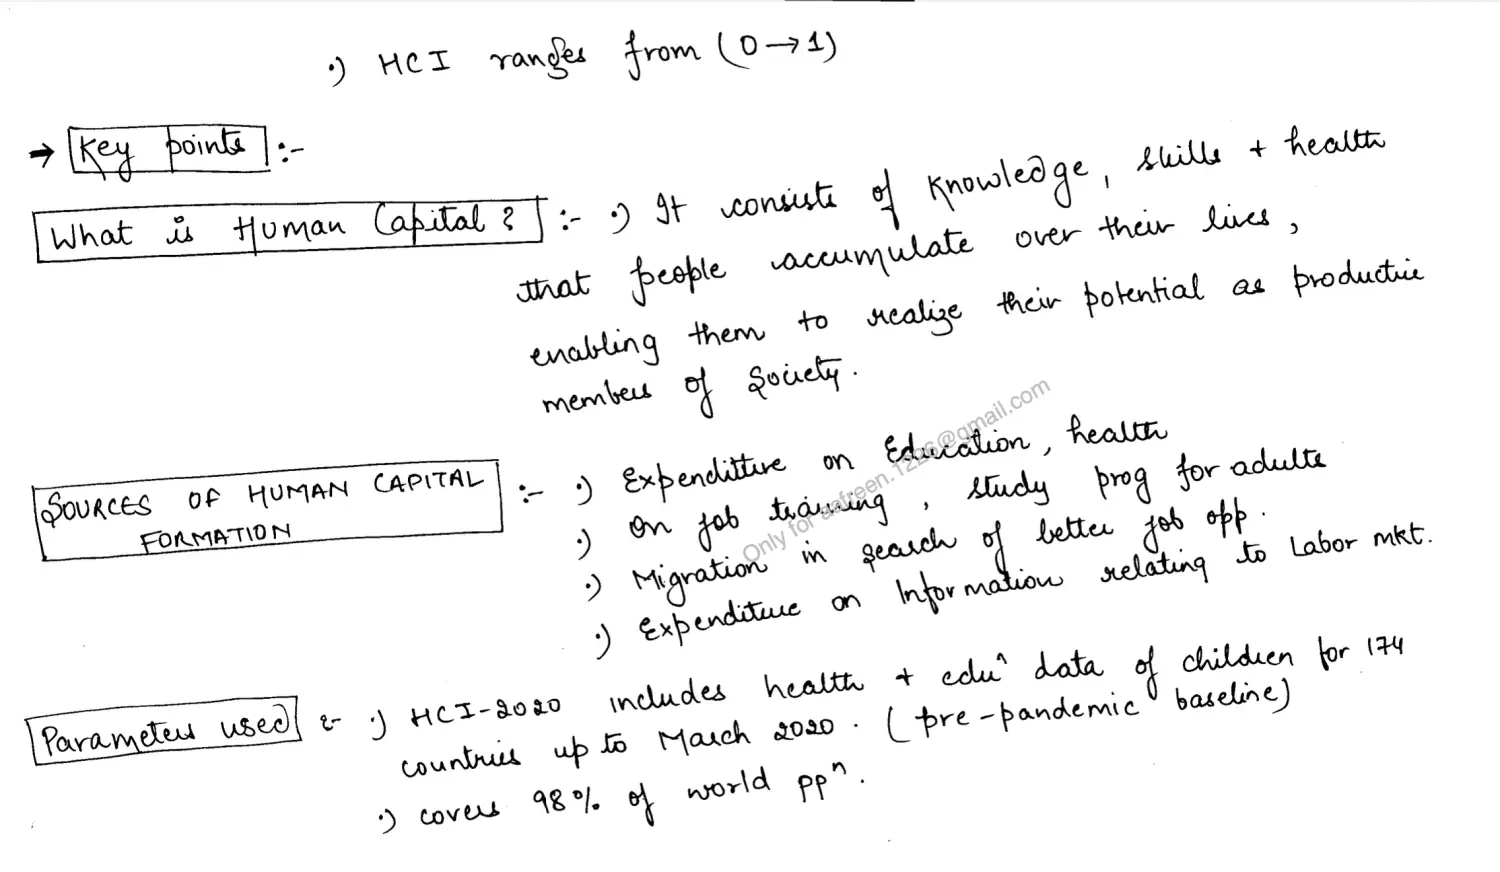 ·) HCI ranges from (0→1)
→ Key points :-
What is Human Capital? :- ·) It consists of knowledge, skills + health
that people accumulate over their lives,
enabling them to realize their potential as productive
members of society.
SOURCES OF HUMAN CAPITAL FORMATION :- ·) Expenditure on Education, health
·) On job training, study prog for adults
·) Migration in search of better job opp.
·) Expenditure on Information relating to Labor mkt.
Parameters used :- ·) HCI-2020 includes health + eduⁿ data of children for 174
countries up to March 2020. (pre-pandemic baseline)
·) covers 98% of world ppⁿ.
Only for aafreen.1226@gmail.com